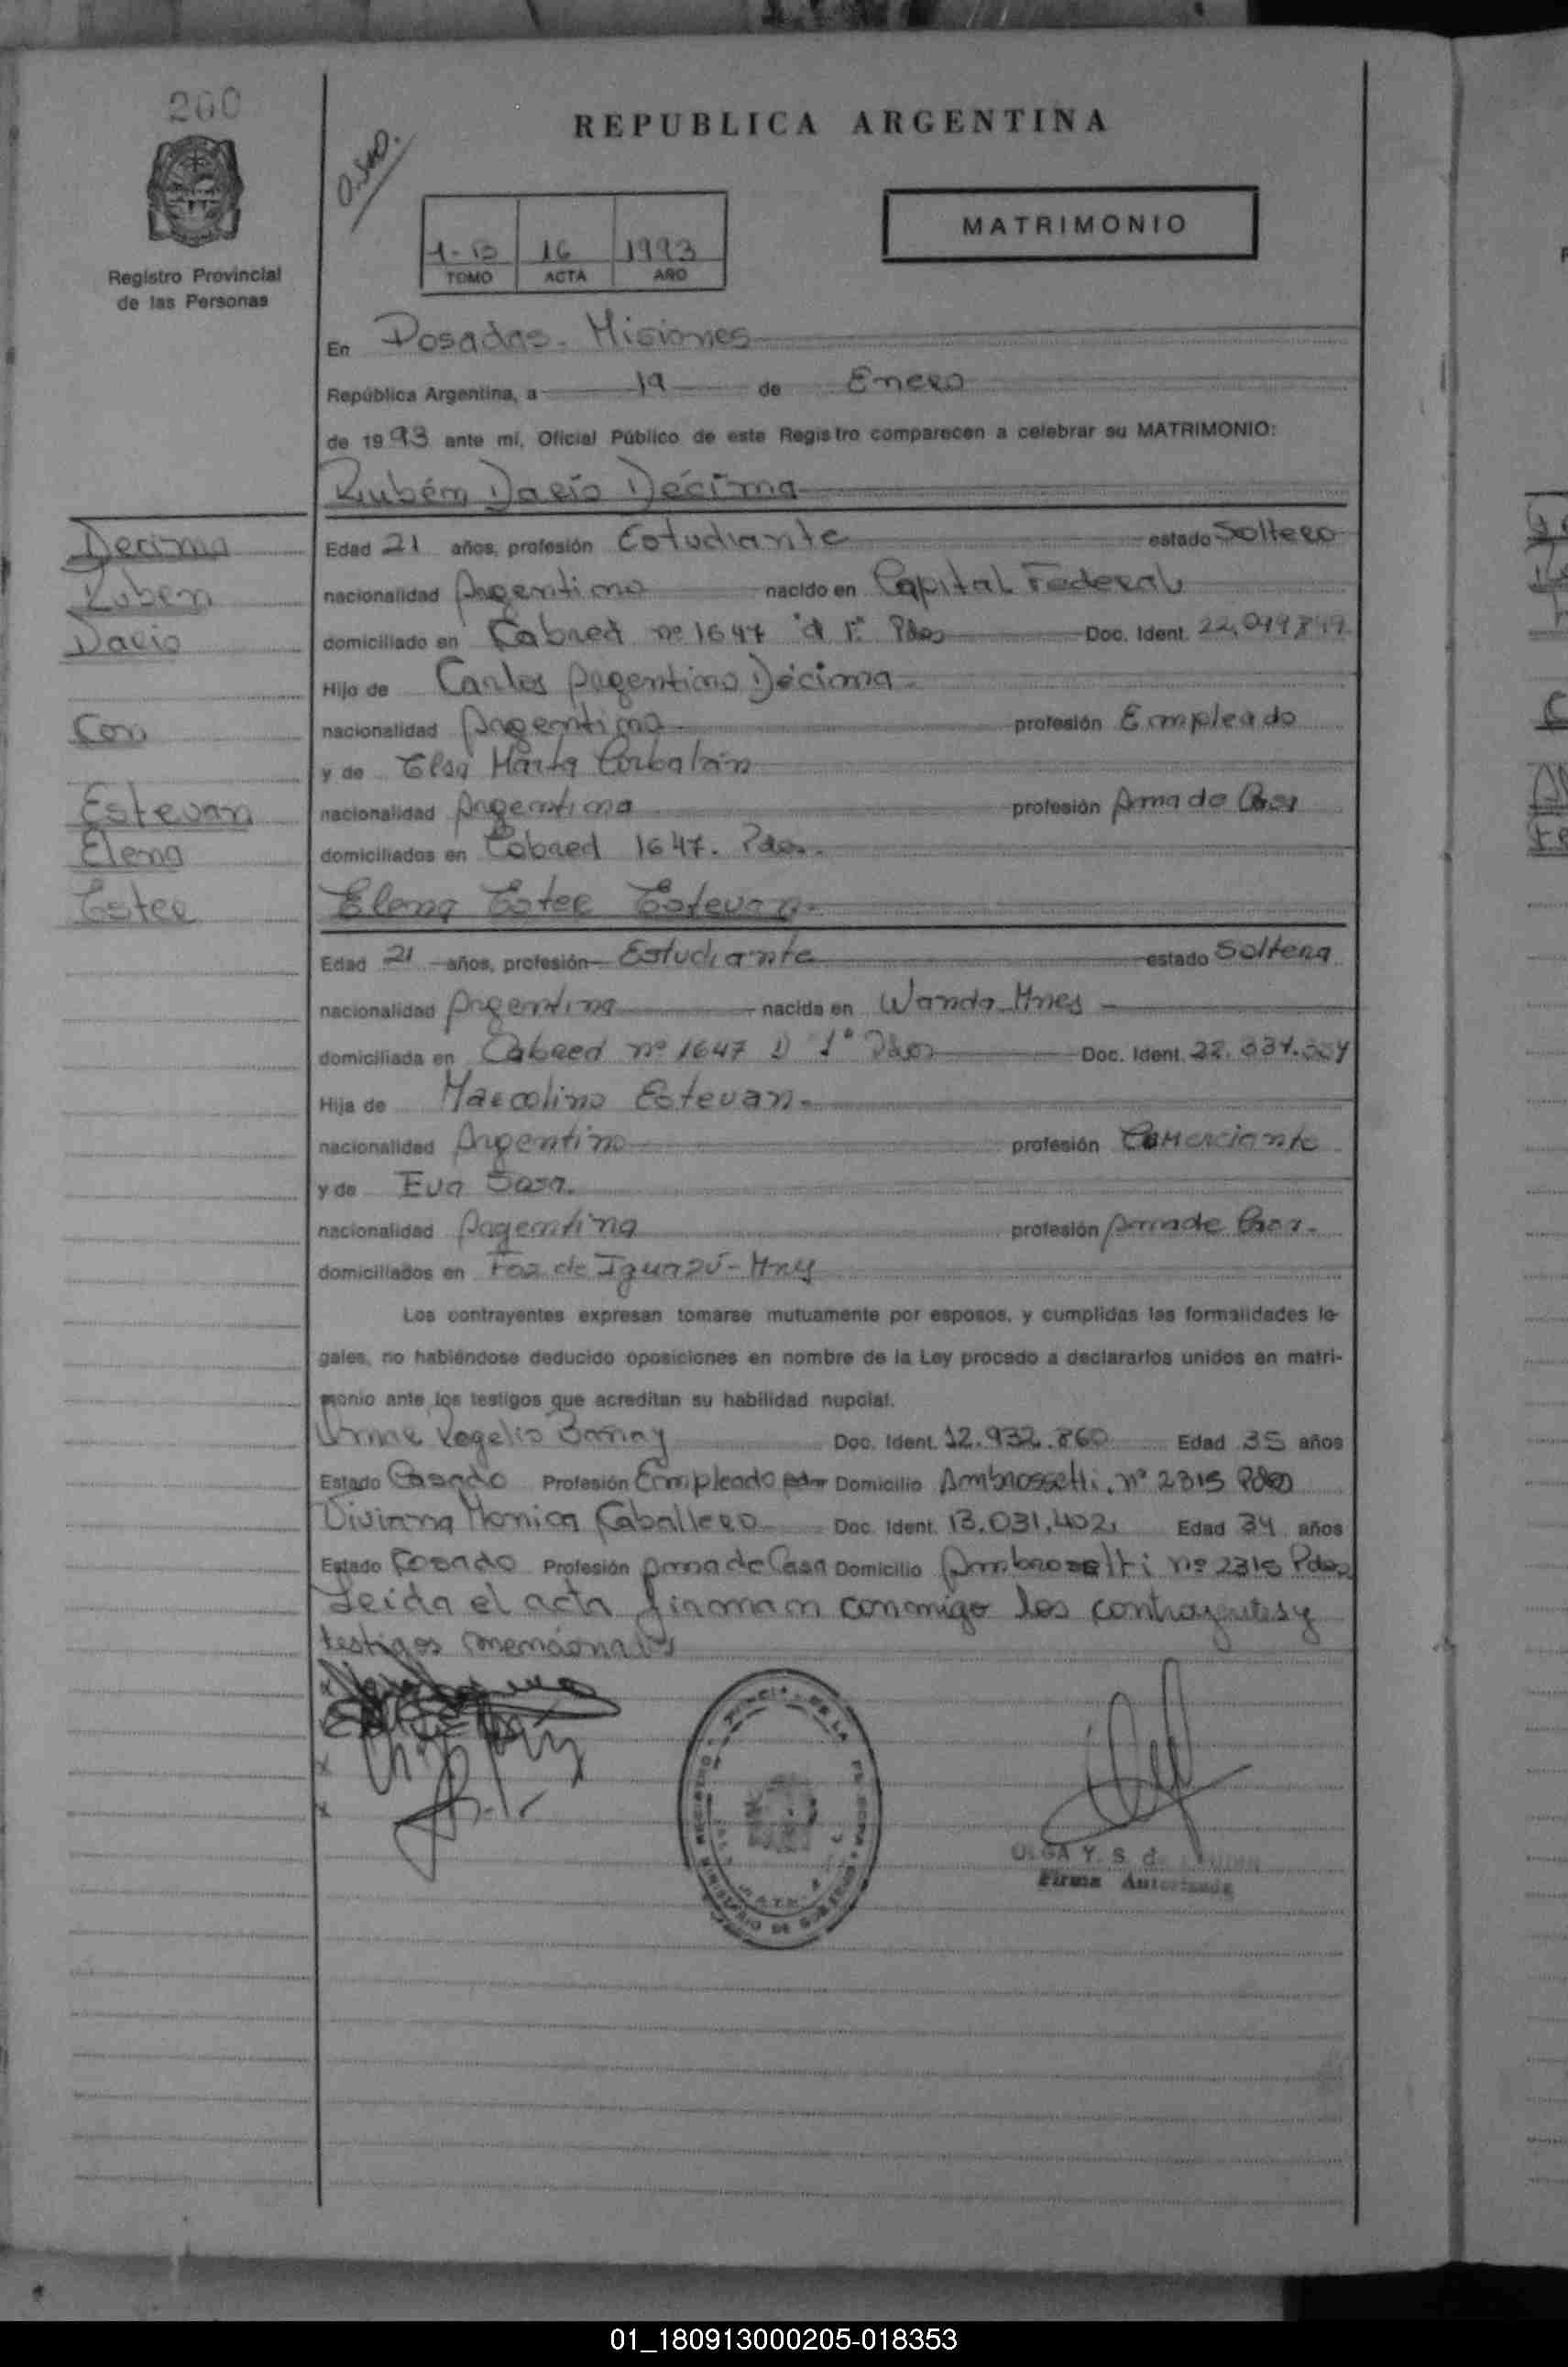 200
REPUBLICA ARGENTINA
MATRIMONIO
16 1993
TOMO ACTA AÑO
Registro Provincial
de las Personas
En Posadas. Misiones
República Argentina, a 19 de Enero
de 1993 ante mí, Oficial Público de este Registro comparecen a celebrar su MATRIMONIO:
Rubém Dario Décima
Decima
Ruben
Dario
Con
Estevan
Elena
Ester
Edad 21 años, profesión Estudiante estado Soltero
nacionalidad Argentino nacido en Capital Federal
domiciliado en Cabred nº 1647 Pdas Doc. Ident.
Hijo de Carlos Argentino Décima
nacionalidad Argentino profesión Empleado
y de Elsa Marta Corbalán
nacionalidad Argentina profesión Ama de Casa
domiciliados en Cabred 1647. Pdas.
Elena Ester Estevan
Edad 21 años, profesión Estudiante estado Soltera
nacionalidad Argentina nacida en Wanda Mnes
domiciliada en Cabred nº 1647 D 1º Pdas Doc. Ident.
Hija de Marcolino Estevan
nacionalidad Argentino profesión Comerciante
y de Eva
nacionalidad Argentina profesión Ama de Casa.
domiciliados en Foz de Iguazú - Mnes
Los contrayentes expresan tomarse mutuamente por esposos, y cumplidas las formalidades le-
gales, no habiéndose deducido oposiciones en nombre de la Ley procedo a declararlos unidos en matri-
monio ante los testigos que acreditan su habilidad nupcial.
Rogelio Doc. Ident. 12.932.860 Edad 35 años
Estado Casado Profesión Empleado Domicilio Ambrossetti. nº 2315 Pdas
Viviana Monica Caballero Doc. Ident. 13.031.402 Edad 34 años
Estado Casado Profesión Ama de Casa Domicilio Ambrosetti nº 2315 Pdas
Leida el acta firmam conmigo los contrayentes y
testigos mencionados
OLGA Y. S. d
Firma Autorizada
01_180913000205-018353